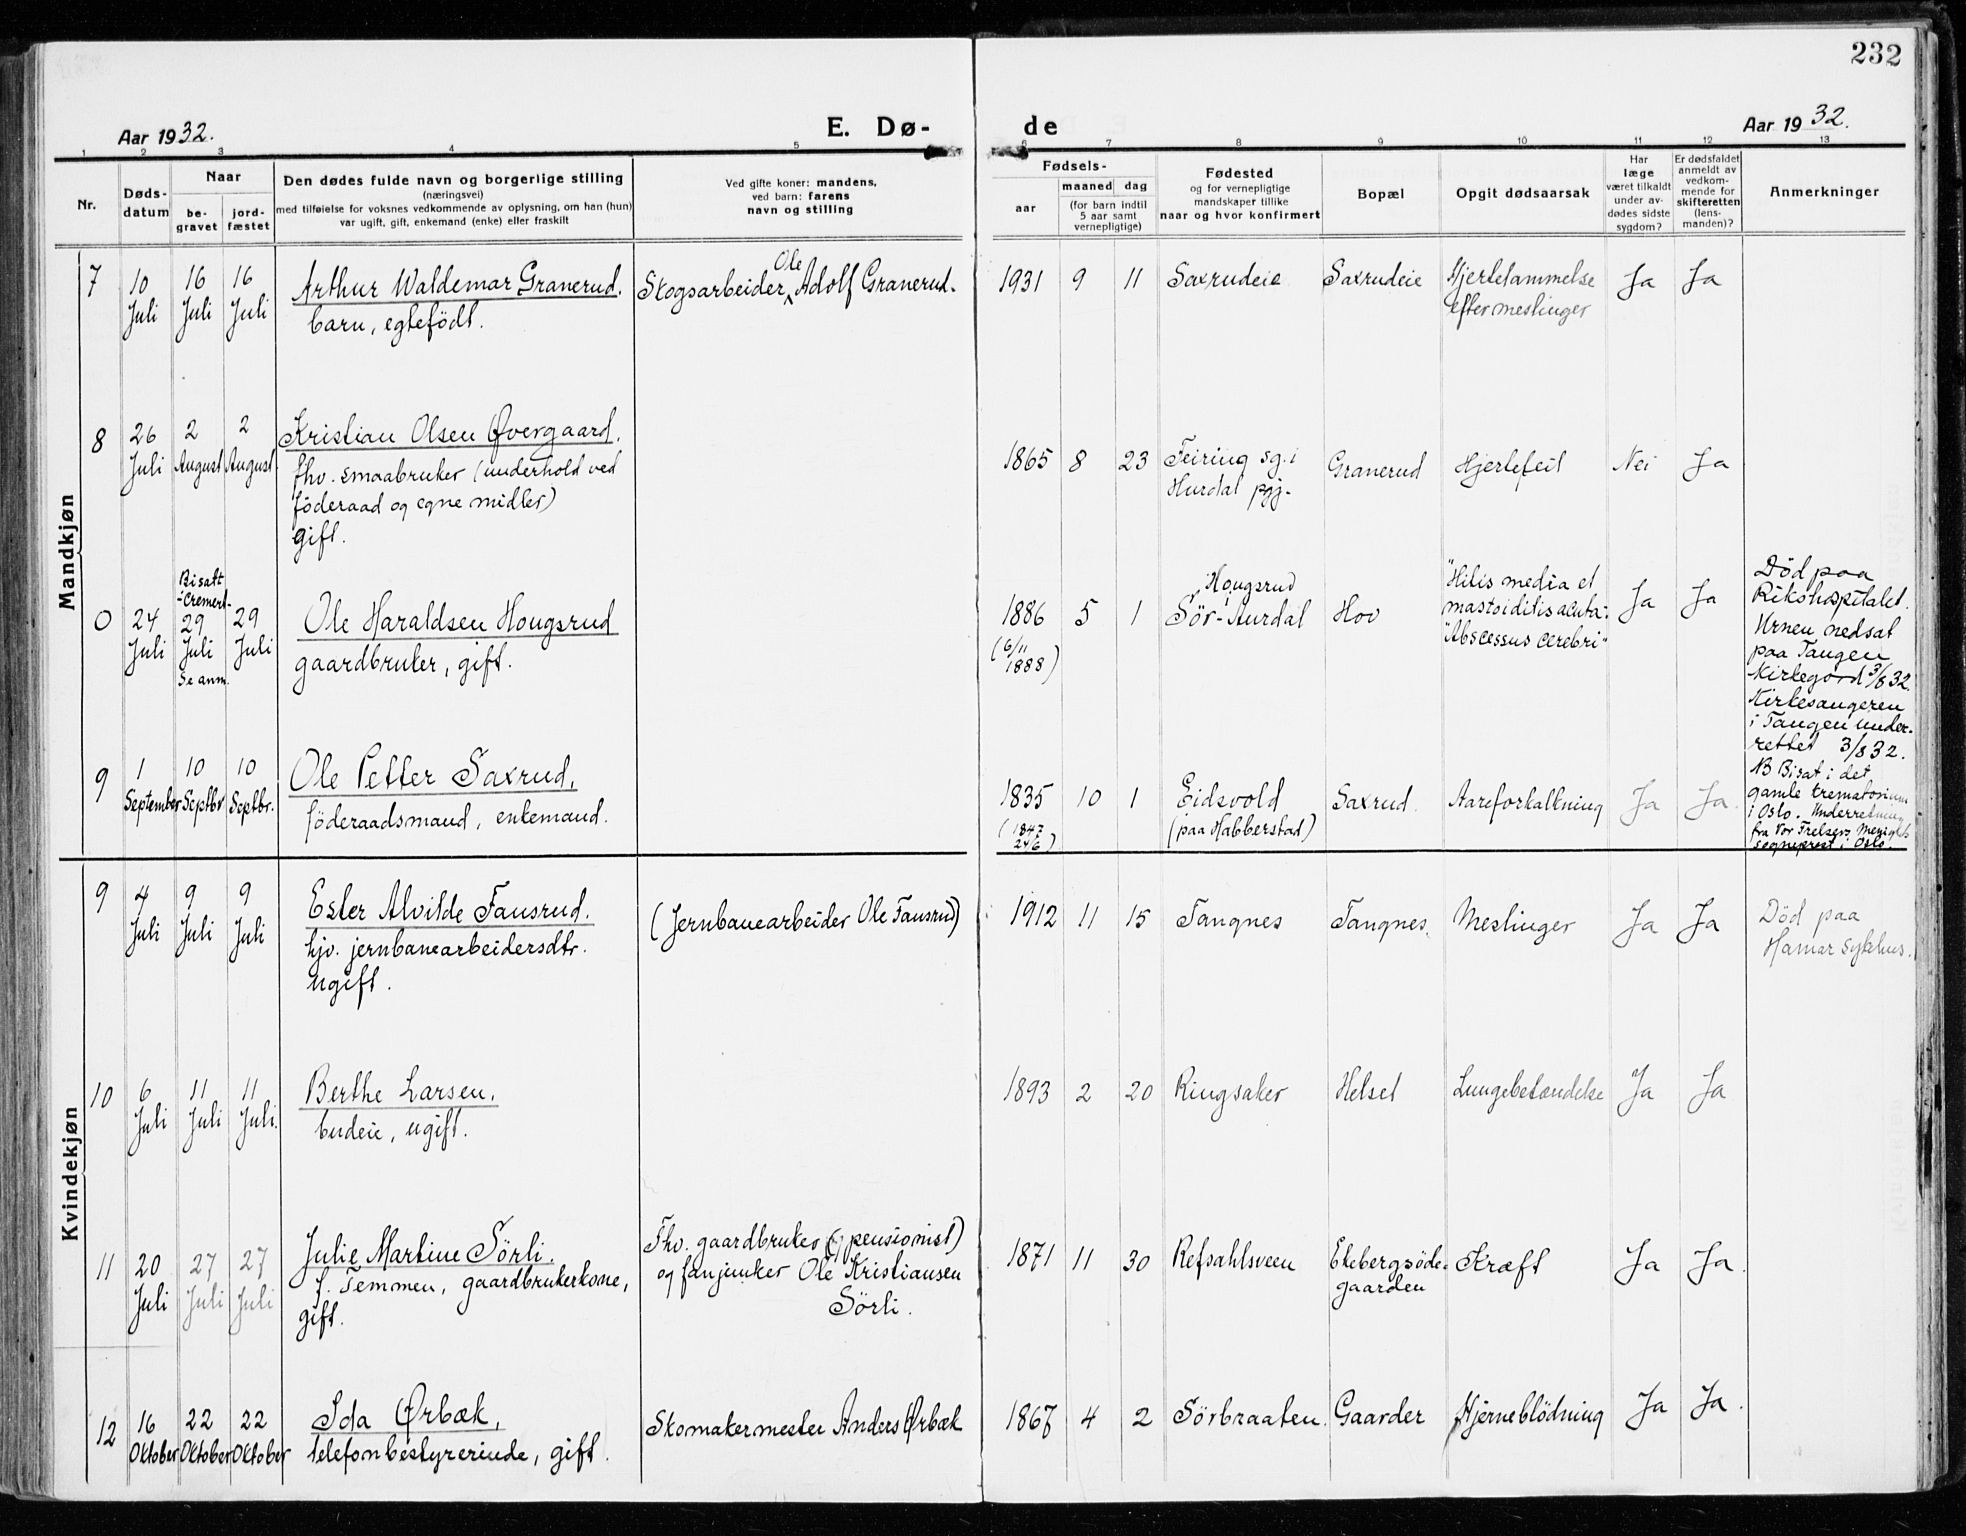 232
Aar 1932.
E. Dø-
de
Aar 1932.
1 2 3 4 5 6 7 8 9 10 11 12 13
Nr.
Døds-
datum
Naar
be-
gravet
jord-
fæstet
Den dødes fulde navn og borgerlige stilling
(næringsvei)
med tilføielse for voksnes vedkommende av oplysning, om han (hun)
var ugift, gift, enkemand (enke) eller fraskilt
Ved gifte koner: mandens,
ved barn: farens
navn og stilling
Fødsels-
aar
maaned dag
(for barn indtil
5 aar samt
vernepligtige)
Fødested
og for vernepligtige
mandskaper tillike
naar og hvor konfirmert
Bopæl
Opgit dødsaarsak
Har
læge
været tilkaldt
under av-
dødes sidste
sygdom?
Er dødsfaldet
anmeldt av
vedkom-
mende for
skifteretten
(lens-
manden)?
Anmerkninger
Mandkjøn
7
10
Juli
16
Juli
16
Juli
Arthur Waldemar Granerud.
barn, egtefödt.
Ole
Skogsarbeider Adolf Granerud.
1931 9 11
Saxrudeie
Saxrudeie
Hjertelammelse
efter meslinger
Ja
Ja
8
26
Juli
2
August
2
August
Kristian Olsen Øvergaard.
fhv. smaabruker (underhold ved
föderaad og egne midler)
gift.
1865 8 23
Feiring sg. i
Hurdal pgj.
Granerud
Hjertefeil
Nei
Ja
0
24
Juli
Bisatt
-Cremert-
29
Juli
Se anm.
29
Juli
Ole Haraldsen Hougsrud
gaardbruker, gift.
1886 5 1
(6/11
1888)
Hougsrud
Sör-Aurdal
Hov
"Hitis media et
mastoiditis acuta.
"Abscessus cerebri"
Ja
Ja
Död paa
Rikshospitalet.
Urnen nedsat
paa Tangen
Kirkegård 3/8 32.
Kirkesangeren
i Tangen under-
rettet 3/8 32.
NB Bisat i det
gamle krematorium
i Oslo. Underretning
fra Vor Frelsers Menighets
sogneprest i Oslo.
9
1
September
10
Septbr
10
Septbr.
Ole Petter Saxrud,
föderaadsmand, enkemand.
1835 10 1
(1847
24/6)
Eidsvold
(paa Habberstad)
Saxrud.
Aareforkalkning
Ja
Ja.
Kvindekjøn
9
4
Juli
9
Juli
9
Juli
Ester Alvilde Fausrud.
hjv. jernbanearbeidersdtr.
ugift.
(Jernbanearbeider Ole Fausrud)
1912 11 15
Tangnes
Tangnes.
Meslinger
Ja
Ja
Död paa
Hamar sykehus.
10
6
Juli
11
Juli
11
Juli.
Berthe Larsen,
budeie, ugift.
1893 2 20
Ringsaker
Helset
Lungebetændelse
Ja
Ja
11
20
Juli
27
Juli
27
Juli
Julie Martine Sörli.
f. Temmen, gaardbrukerkone,
gift.
Fhv. gaardbruker (pensionist)
og fanjunker Ole Kristiansen
Sörli.
1871 11 30
Refsahlsveen
Ekebergsöde-
gaarden
Kræft
Ja
Ja.
12
16
Oktober
22
Oktober
22
Oktober
Ida Ørbæk,
telefonbestyrerinde, gift.
Skomakermester Anders Ørbæk
1867 4 2
Sörbraaten.
Gaarder
Hjerneblödning
Ja
Ja.